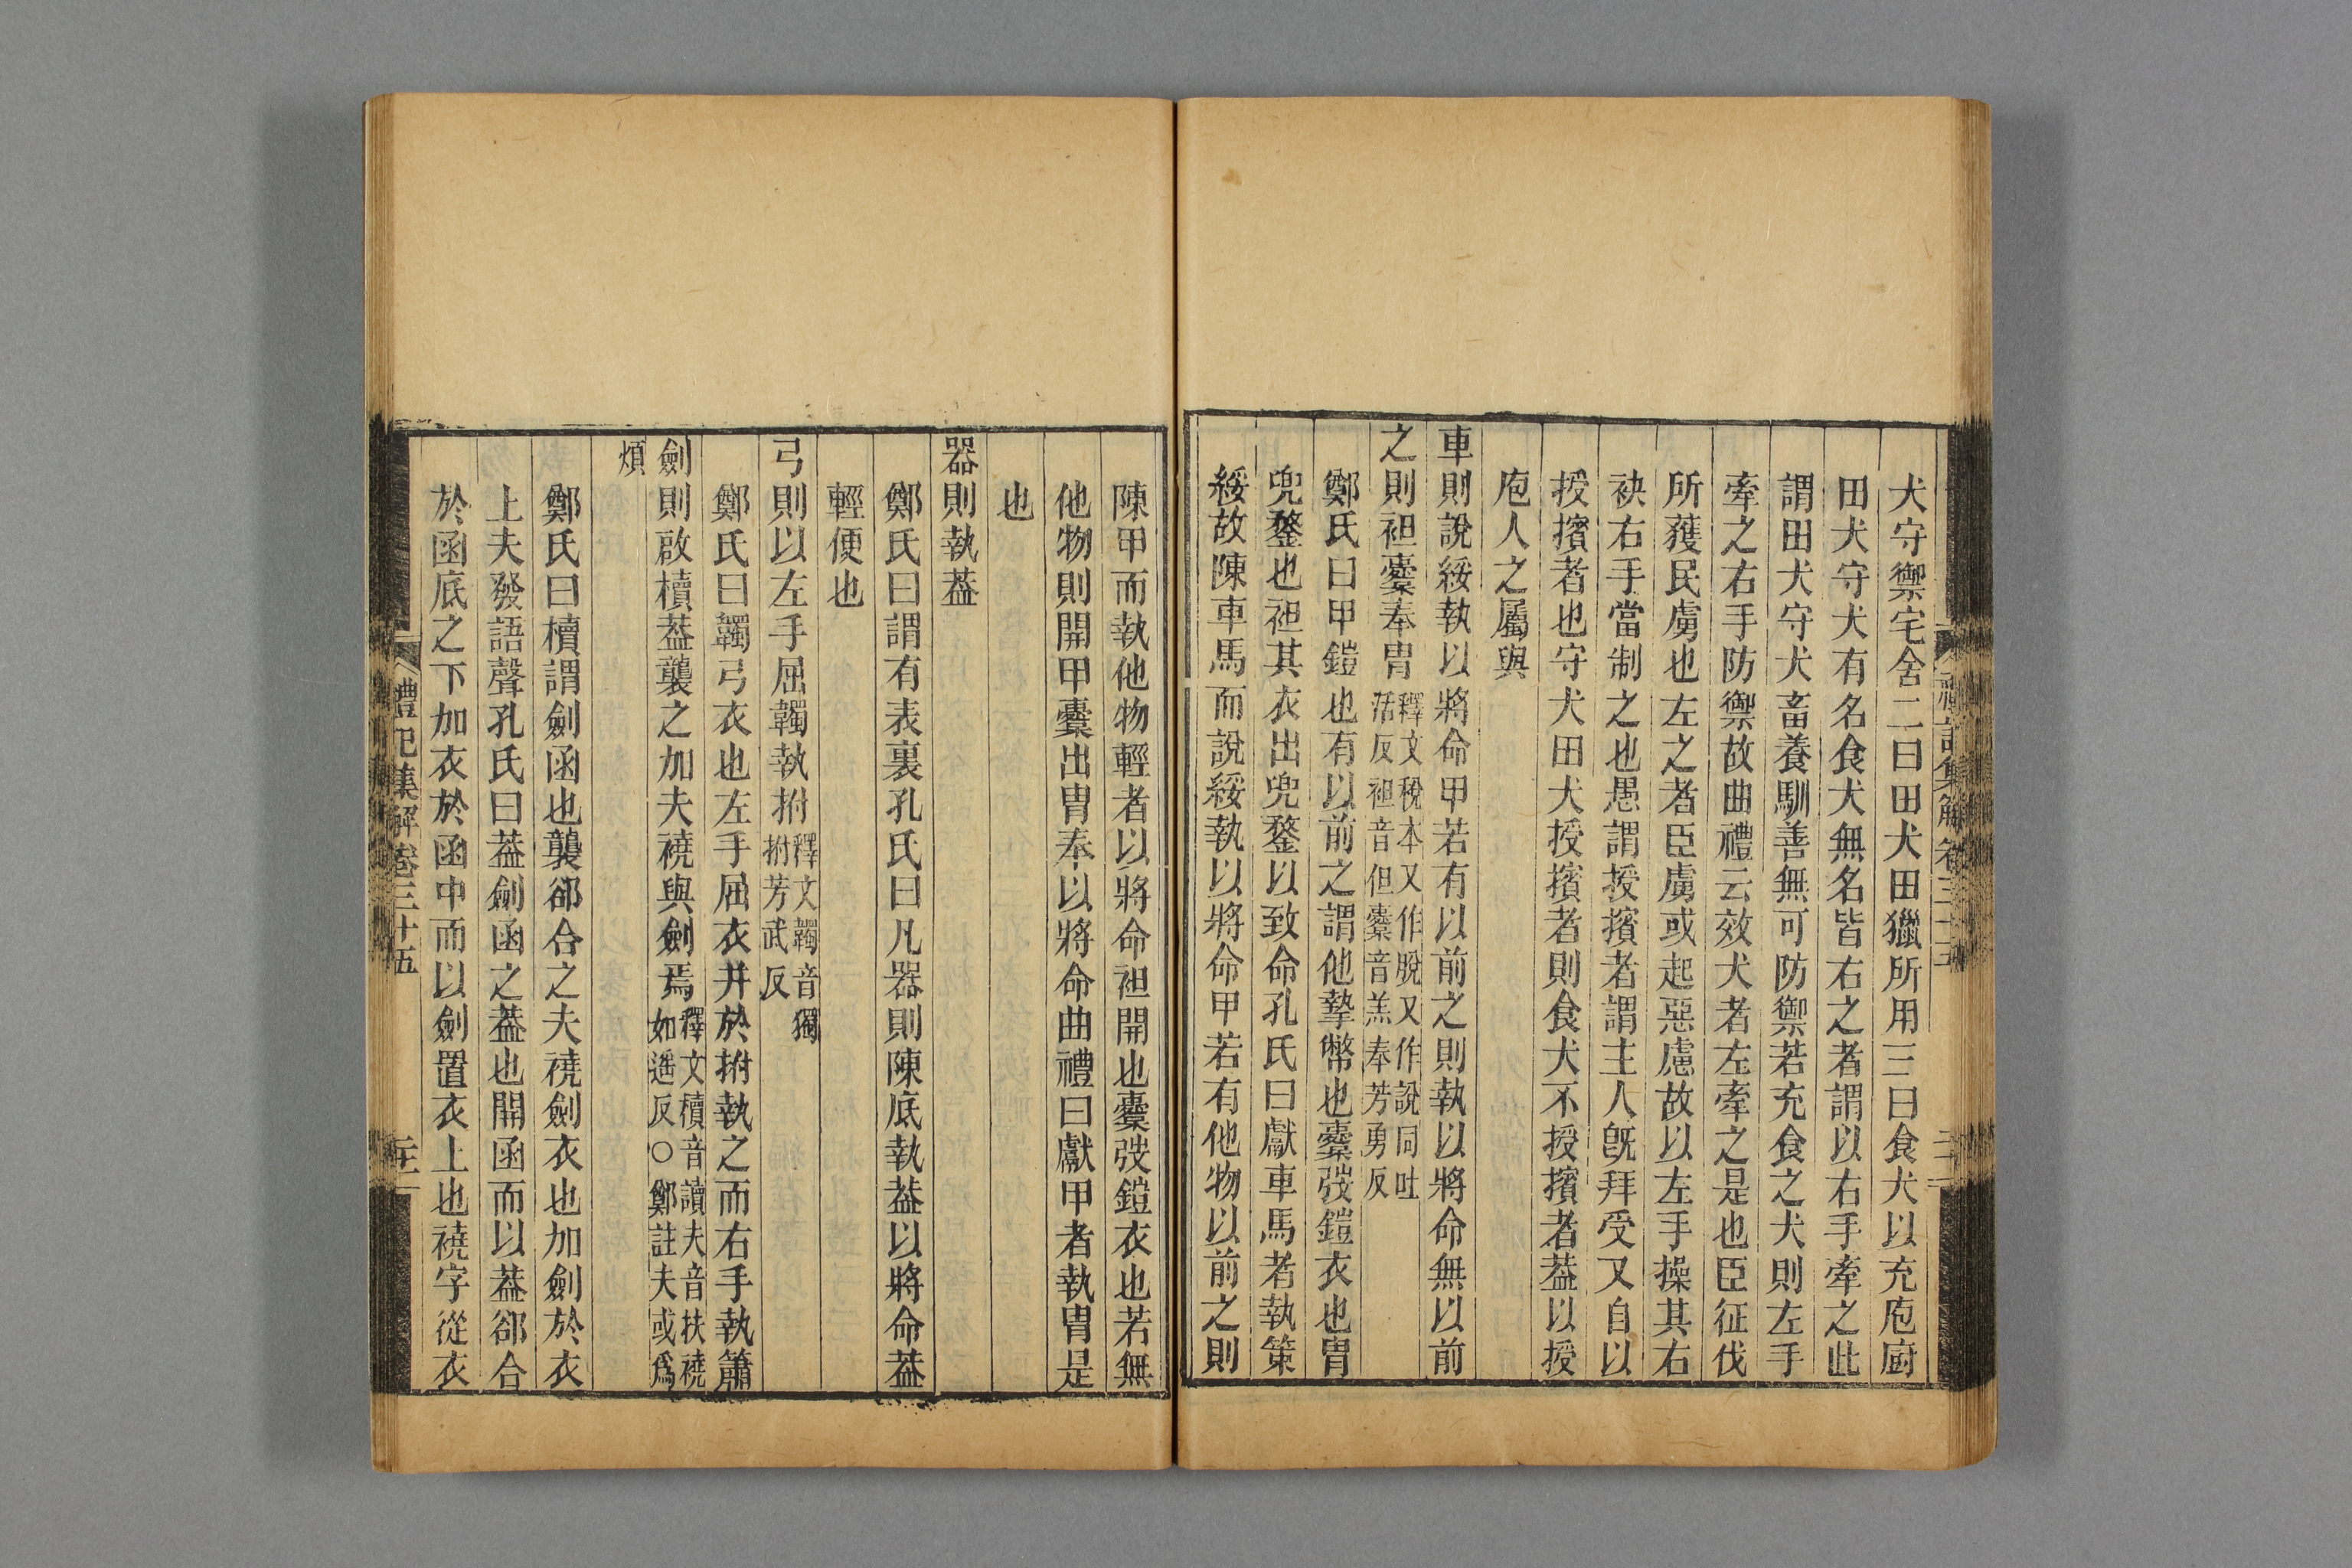 犬守禦宅舍二曰田犬田獵所用三曰食犬以充庖厨
田犬守犬有名食犬無名皆右之者謂以右手牽之此
謂田犬守犬畜養馴善無可防禦若充食之犬則左手
牽之右手防禦故曲禮云效犬者左牽之是也臣征伐
所獲民虜也左之者臣虜或起惡慮故以左手操其右
袂右手當制之也愚謂授擯者謂主人旣拜受又自以
授擯者也守犬田犬授擯者則食犬不授擯者葢以授
庖人之屬與
車則說綏執以將命甲若有以前之則執以將命無以前
之則袒櫜奉冑釋文稅本又作脫又作說同吐
活反袒音但櫜音羔奉芳勇反
鄭氏曰甲鎧也有以前之謂他摯幣也櫜弢鎧衣也冑
兜鍪也袒其衣出兜鍪以致命孔氏曰獻車馬者執策
綏故陳車馬而說綏執以將命甲若有他物以前之則
陳甲而執他物輕者以將命袒開也櫜弢鎧衣也若無
他物則開甲櫜出冑奉以將命曲禮曰獻甲者執冑是
也
器則執葢
鄭氏曰謂有表裏孔氏曰凡器則陳底執葢以將命葢
輕便也
弓則以左手屈韣執拊釋文韣音獨
拊芳武反
鄭氏曰韣弓衣也左手屈衣并於拊執之而右手執簫
劍則啟櫝葢襲之加夫襓與劍焉釋文櫝音讀夫音扶襓
如遥反○鄭註夫或爲
煩
鄭氏曰櫝謂劍函也襲郤合之夫襓劍衣也加劍於衣
上夫發語聲孔氏曰葢劍函之葢也開函而以葢郤合
於函底之下加衣於函中而以劍置衣上也襓字從衣
禮記集解卷三十五